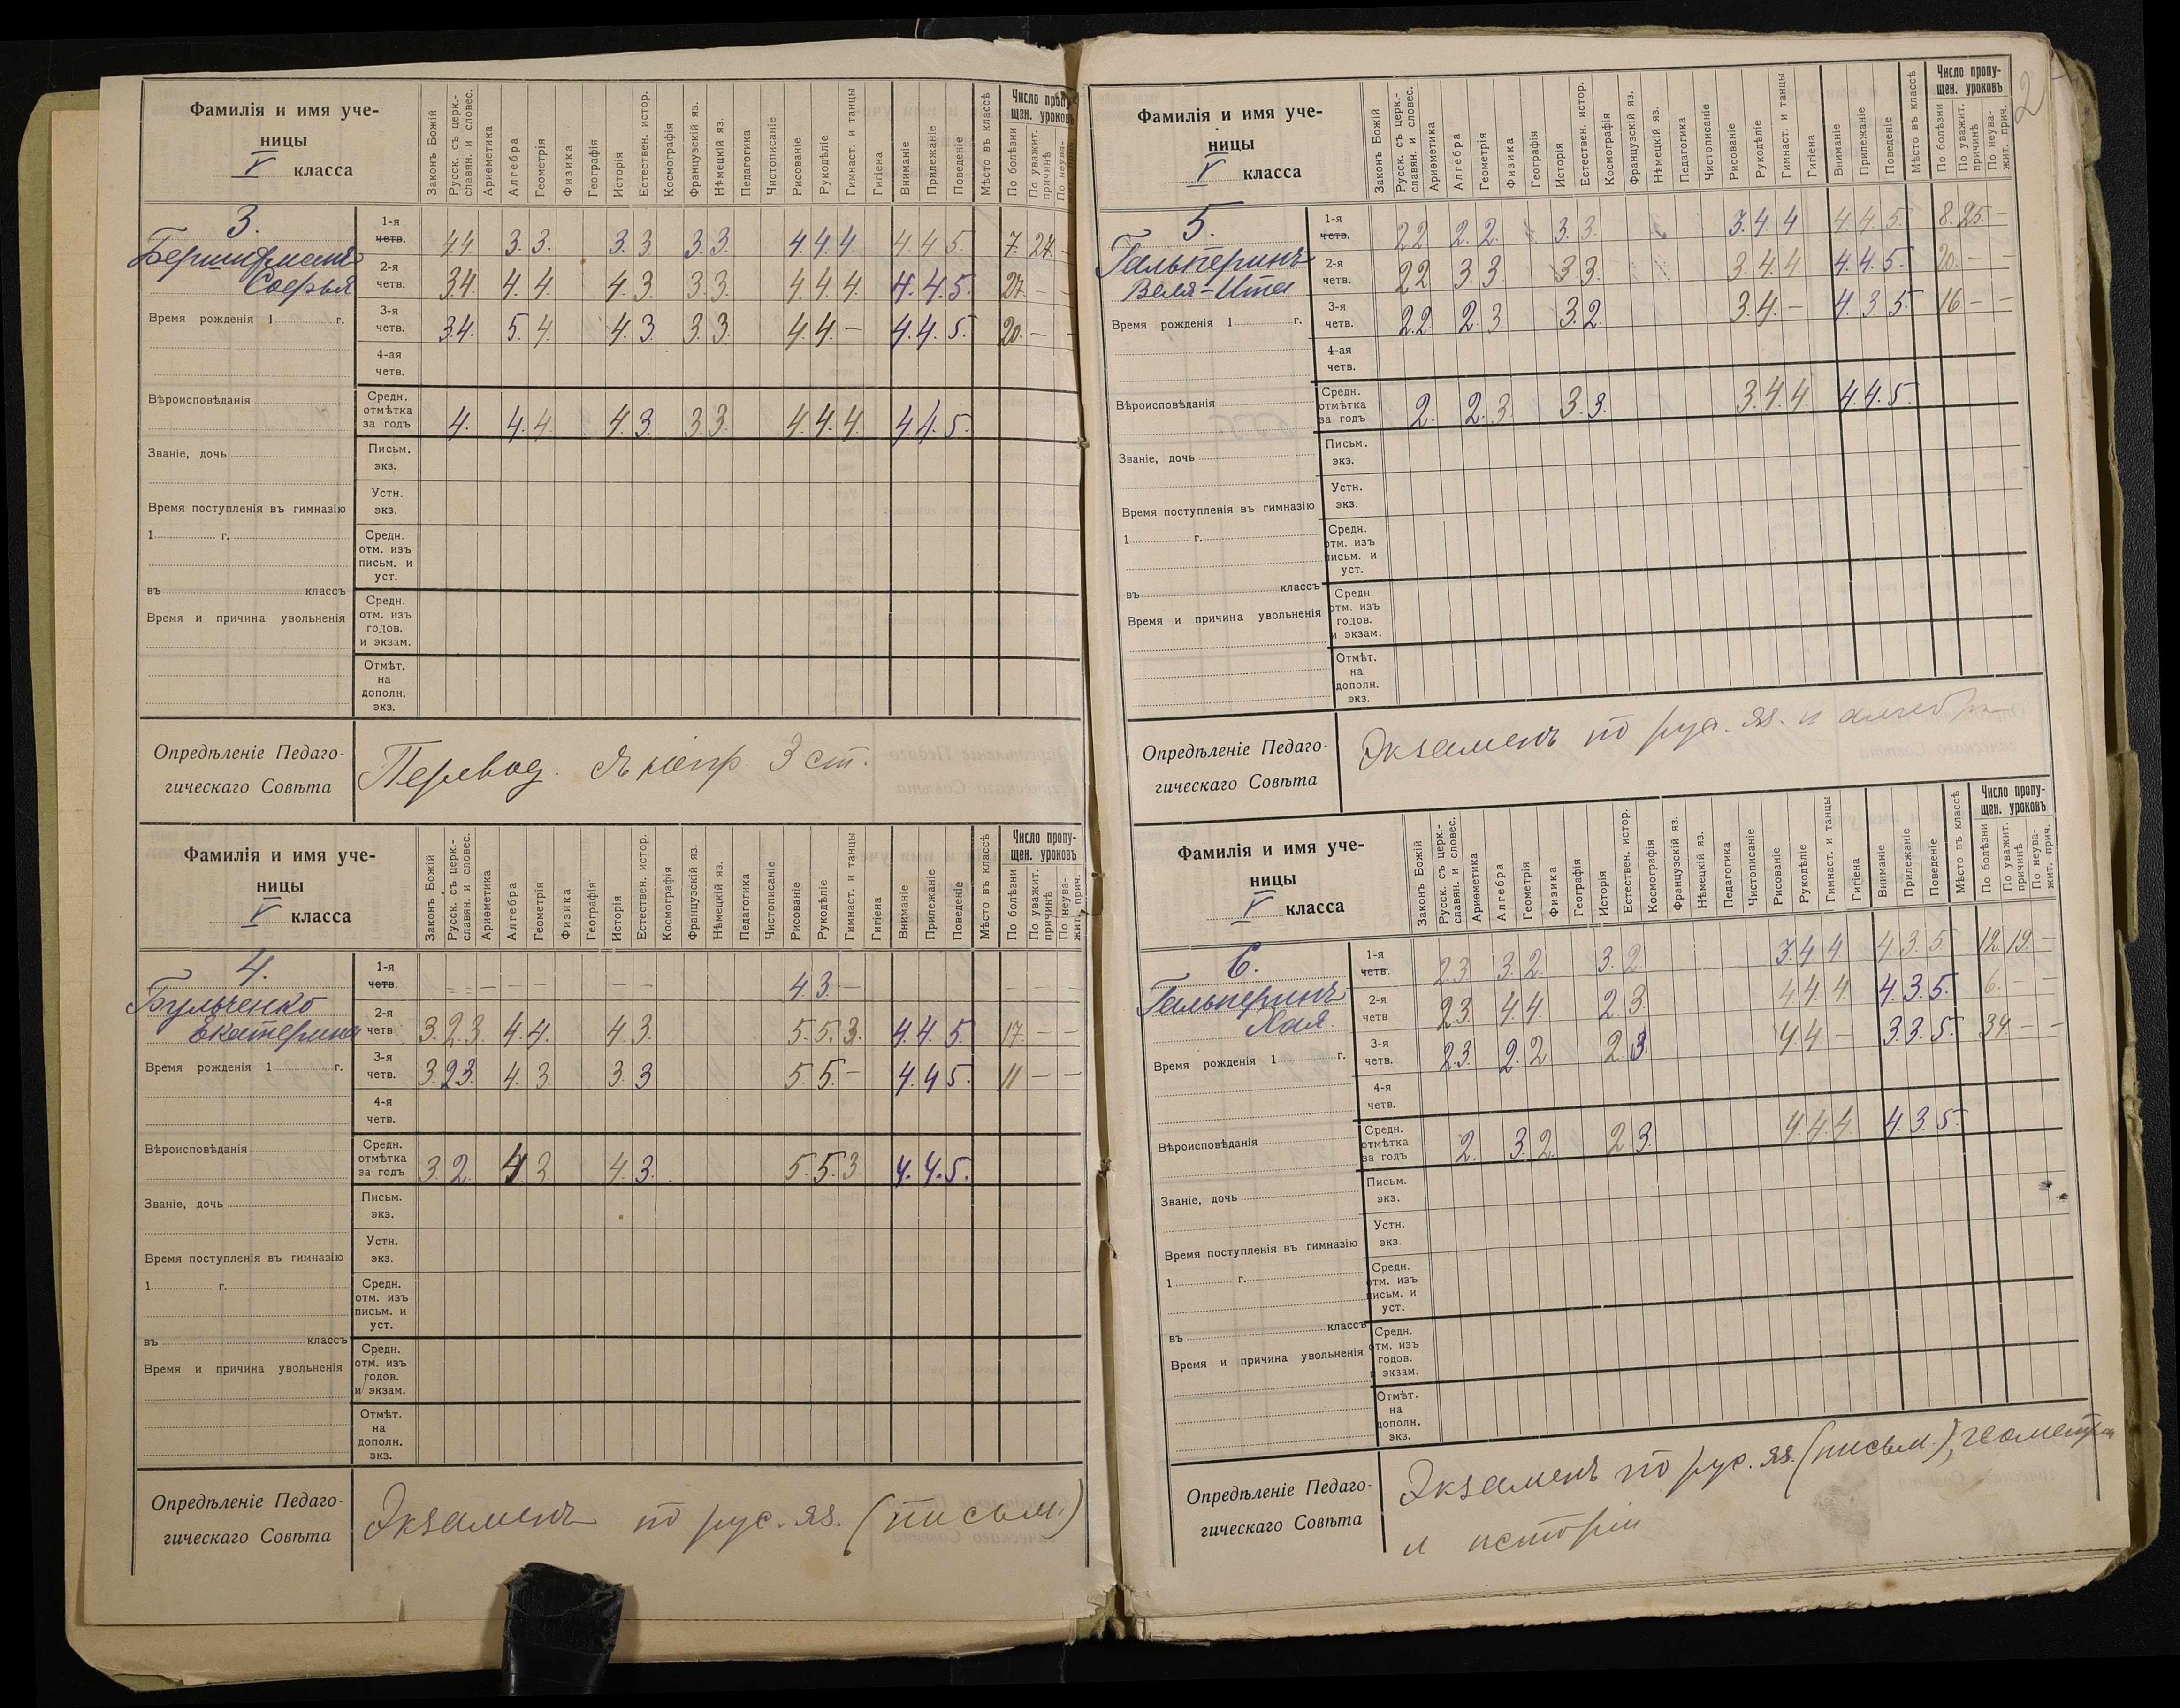 2
Фамилія и имя уче-
ницы
V класса
Законъ Божій
Русск. съ церк.-
славян. и словес.
Ариѳметика
Алгебра
Геометрія
Физика
Географія
Исторія
Естествен. истор.
Космографія
Французскій яз.
Нѣмецкій яз.
Педагогика
Чистописаніе
Рисованіе
Рукодѣліе
Гимнаст. и танцы
Гигіена
Вниманіе
Прилежаніе
Поведеніе
Мѣсто въ классѣ
Число пропу-
щен. уроковъ
По болѣзни
По уважит.
причинѣ
По неува-
3.
Софья
1-я четв. 4 4 3. 3. 3. 3 3. 3. 4. 4 4 4. 4. 5. 7. 24. -
2-я четв. 3 4. 4. 4. 4. 3. 3. 3. 4. 4. 4. 4. 4. 5. 27. -
3-я четв. 3 4. 5. 4. 4. 3. 3. 3. 4. 4. - 4. 4. 5. 20. - -
4-ая четв.
Время рожденія 1 г.
Вѣроисповѣданія
Средн. отмѣтка за годъ 4. 4. 4 4. 3. 3 3. 4. 4. 4. 4. 4. 5.
Званіе, дочь
Письм. экз.
Время поступленія въ гимназію
Устн. экз.
1 г.
Средн. отм. изъ письм. и уст.
въ классъ
Время и причина увольненія
Средн. отм. изъ годов. и экзам.
Отмѣт. на дополн. экз.
Опредѣленіе Педаго-
гическаго Совѣта
Перевод. 3 ст.
Фамилія и имя уче-
ницы
V класса
Законъ Божій
Русск. съ церк.-
славян. и словес.
Ариѳметика
Алгебра
Геометрія
Физика
Географія
Исторія
Естествен. истор.
Космографія
Французскій яз.
Нѣмецкій яз.
Педагогика
Чистописаніе
Рисованіе
Рукодѣліе
Гимнаст. и танцы
Гигіена
Вниманіе
Прилежаніе
Поведеніе
Мѣсто въ классѣ
Число пропу-
щен. уроковъ
По болѣзни
По уважит.
причинѣ
По неува-
жит. прич.
4.
Бульченко
Екатерина
1-я четв. - - - - - - 4. 3. - - - -
2-я четв 3. 2. 3. 4. 4. 4. 3. 5. 5. 3. 4. 4. 5. 17. - -
3-я четв. 3. 2 3. 4. 3. 3. 3 5. 5. - 4. 4 5. 11 - -
4-я четв.
Время рожденія 1 г.
Вѣроисповѣданія
Средн. отмѣтка за годъ 3. 2. 4 3. 4. 3. 5. 5. 3. 4. 4. 5.
Званіе, дочь
Письм. экз.
Время поступленія въ гимназію
Устн. экз.
1 г.
Средн. отм. изъ письм. и уст.
въ классъ
Время и причина увольненія
Средн. отм. изъ годов. и экзам.
Отмѣт. на дополн. экз.
Опредѣленіе Педаго-
гическаго Совѣта
Экзаменъ по рус. яз. (письм.)
Фамилія и имя уче-
ницы
V класса
Законъ Божій
Русск. съ церк.-
славян. и словес.
Ариѳметика
Алгебра
Геометрія
Физика
Географія
Исторія
Естествен. истор.
Космографія
Французскій яз.
Нѣмецкій яз.
Педагогика
Чистописаніе
Рисованіе
Рукодѣліе
Гимнаст. и танцы
Гигіена
Вниманіе
Прилежаніе
Поведеніе
Мѣсто въ классѣ
Число пропу-
щен. уроковъ
По болѣзни
По уважит.
причинѣ
По неува-
жит. прич.
5.
Гальперинъ
Веля-Ита
1-я четв. 2 2 2. 2. 3. 3. 3. 4 4 4 4 5 8. 25. -
2-я четв. 2 2 3. 3. 3 3. 3. 4. 4 4. 4. 5. 20. - -
3-я четв. 2. 2. 2. 3 3. 2. 3 4. - 4. 3 5. 16 - -
4-ая четв.
Время рожденія 1 г.
Вѣроисповѣданія
Средн. отмѣтка за годъ 2. 2. 3. 3. 3. 3. 4. 4. 4. 4. 5.
Званіе, дочь
Письм. экз.
Время поступленія въ гимназію
Устн. экз.
1 г.
Средн. отм. изъ письм. и уст.
въ классъ
Время и причина увольненія
Средн. отм. изъ годов. и экзам.
Отмѣт. на дополн. экз.
Опредѣленіе Педаго-
гическаго Совѣта
Экзаменъ по рус. яз. и алгебр
Фамилія и имя уче-
ницы
V класса
Законъ Божій
Русск. съ церк.-
славян. и словес.
Ариѳметика
Алгебра
Геометрія
Физика
Географія
Исторія
Естествен. истор.
Космографія
Французскій яз.
Нѣмецкій яз.
Педагогика
Чистописаніе
Рисованіе
Рукодѣліе
Гимнаст. и танцы
Гигіена
Вниманіе
Прилежаніе
Поведеніе
Мѣсто въ классѣ
Число пропу-
щен. уроковъ
По болѣзни
По уважит.
причинѣ
По неува-
жит. прич.
6.
Гальперинъ
Хая.
1-я четв. 2 3 3. 2. 3. 2. 3. 4 4 4 3. 5 12. 19. -
2-я четв 2 3. 4 4. 2 3. 4 4. 4 4. 3. 5. 6. - -
3-я четв. 2 3. 2. 2 2. 3. 4 4 - 3. 3. 5. 34. - -
4-я четв.
Время рожденія 1 г.
Вѣроисповѣданія
Средн. отмѣтка за годъ 2. 3. 2. 2 3. 4. 4. 4. 4. 3. 5.
Званіе, дочь
Письм. экз.
Время поступленія въ гимназію
Устн. экз.
1 г.
Средн. отм. изъ письм. и уст.
въ классъ
Время и причина увольненія
Средн. отм. изъ годов. и экзам.
Отмѣт. на дополн. экз.
Опредѣленіе Педаго-
гическаго Совѣта
Экзаменъ по рус. яз. (письм.), геометріи
и исторіи